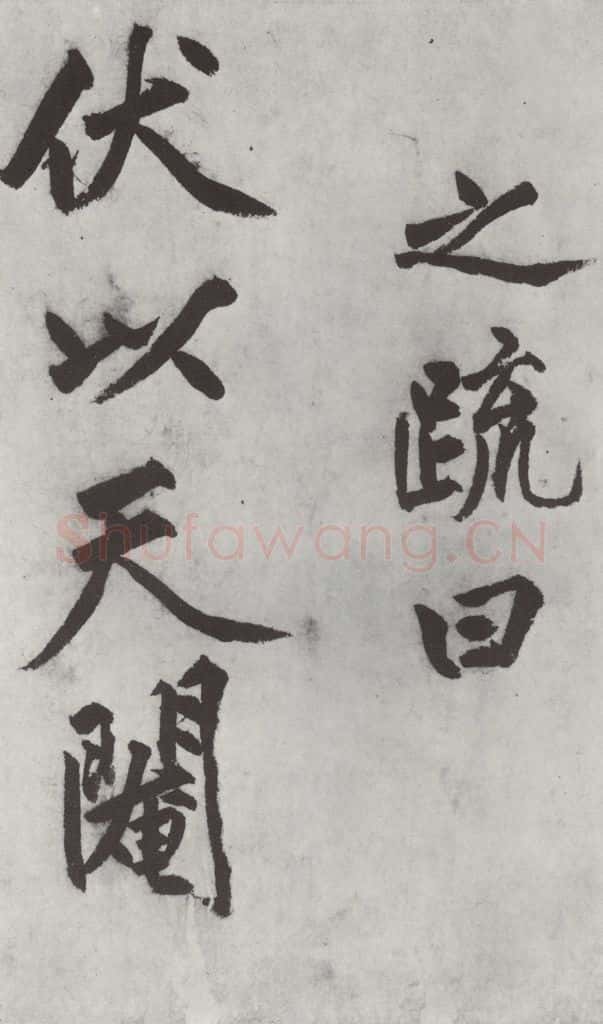 之疏曰
伏以天閹
Shufawang.CN